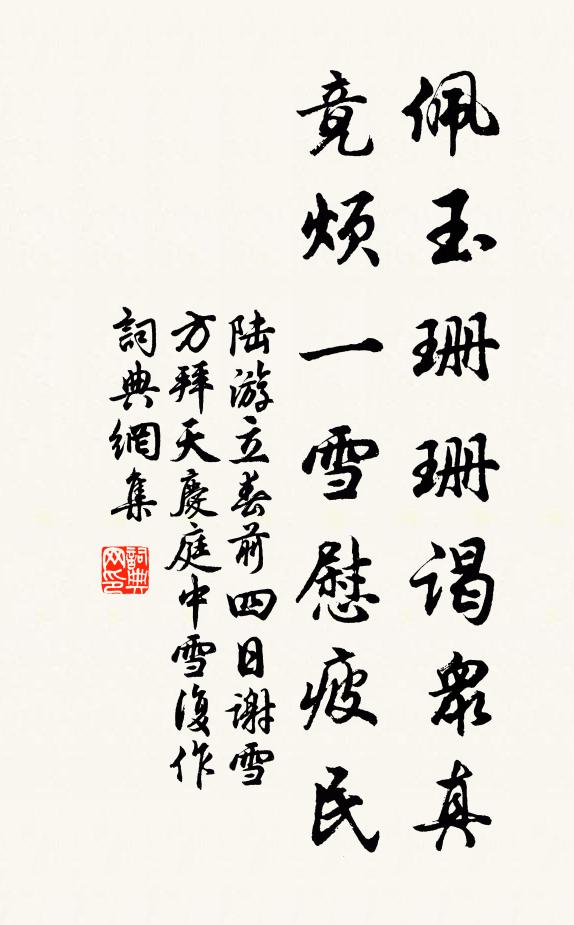 佩玉珊珊谒衆真
竟烦一雪慰疲民
陆游立春前四日谢雪
方拜天慶庭中雪復作
詞典網集
詞典网印